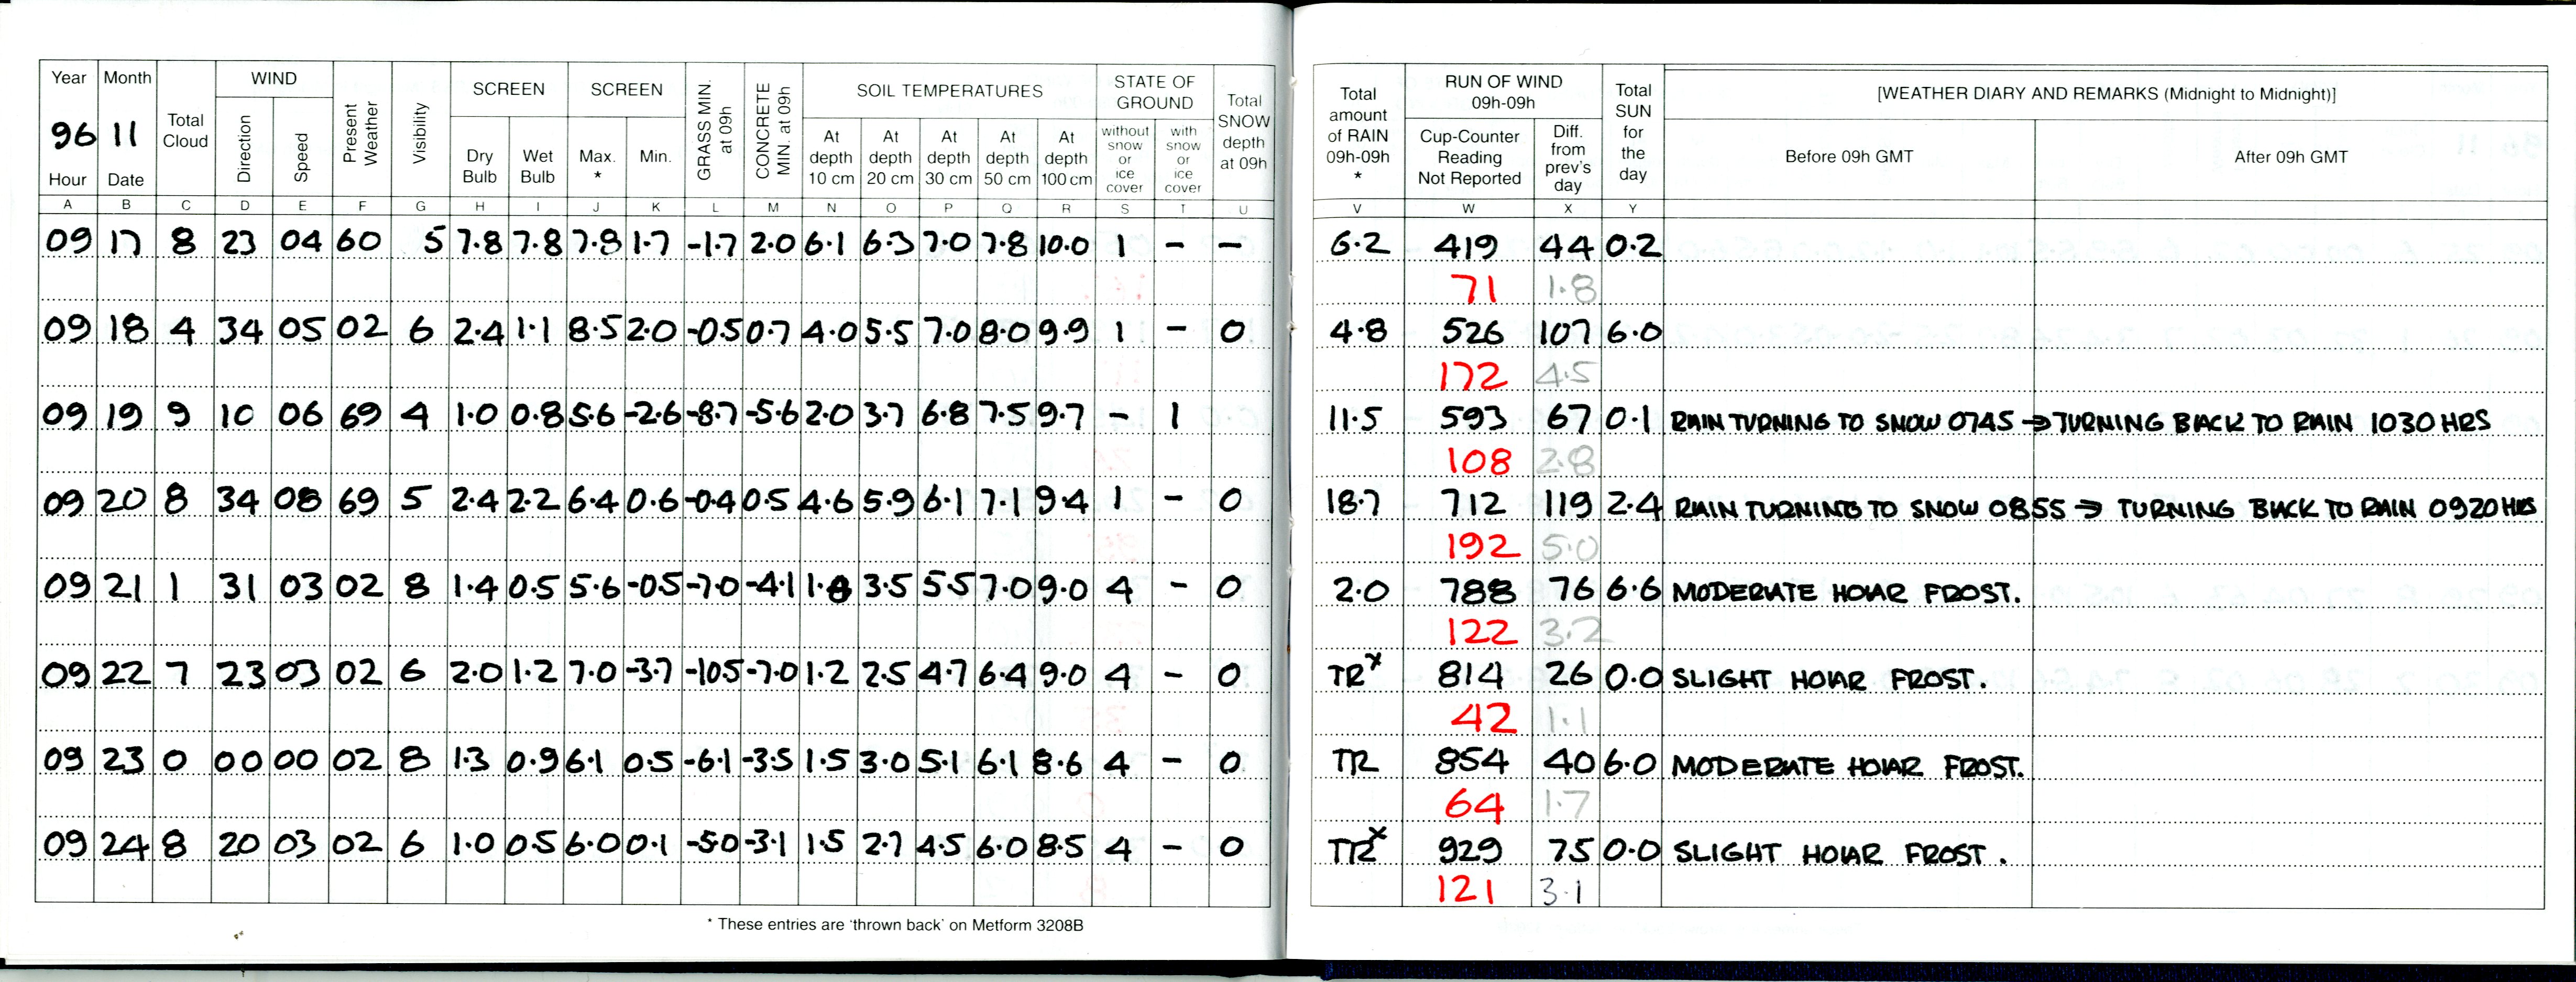 Year Month Total Cloud WIND Present Weather Visibility SCREEN SCREEN GRASS MIN. at 09h CONCRETE MIN. at 09h SOIL TEMPERATURES STATE OF GROUND Total SNOW depth at 09h
96 11 Direction Speed Dry Bulb Wet Bulb Max. * Min. At depth 10 cm At depth 20 cm At depth 30 cm At depth 50 cm At depth 100 cm without snow or ice cover with snow or ice cover
Hour Date
A B C D E F G H I J K L M N O P Q R S T U
09 17 8 23 04 60 5 7.8 7.8 7.8 1.7 -1.7 2.0 6.1 6.3 7.0 7.8 10.0 1 - -
09 18 4 34 05 02 6 2.4 1.1 8.5 2.0 -0.5 0.7 4.0 5.5 7.0 8.0 9.9 1 - 0
09 19 9 10 06 69 4 1.0 0.8 5.6 -2.6 -8.7 -5.6 2.0 3.7 6.8 7.5 9.7 - 1
09 20 8 34 08 69 5 2.4 2.2 6.4 0.6 -0.4 0.5 4.6 5.9 6.1 7.1 9.4 1 - 0
09 21 1 31 03 02 8 1.4 0.5 5.6 -0.5 -7.0 -4.1 1.8 3.5 5.5 7.0 9.0 4 - 0
09 22 7 23 03 02 6 2.0 1.2 7.0 -3.7 -10.5 -7.0 1.2 2.5 4.7 6.4 9.0 4 - 0
09 23 0 00 00 02 8 1.3 0.9 6.1 0.5 -6.1 -3.5 1.5 3.0 5.1 6.1 8.6 4 - 0
09 24 8 20 03 02 6 1.0 0.5 6.0 0.1 -5.0 -3.1 1.5 2.7 4.5 6.0 8.5 4 - 0
* These entries are 'thrown back' on Metform 3208B
Total amount of RAIN 09h-09h * RUN OF WIND 09h-09h Total SUN for the day [WEATHER DIARY AND REMARKS (Midnight to Midnight)]
Cup-Counter Reading Not Reported Diff. from prev's day Before 09h GMT After 09h GMT
V W X Y
6.2 419 44 0.2
71 1.8
4.8 526 107 6.0
172 4.5
11.5 593 67 0.1 RAIN TURNING TO SNOW 0745 → TURNING BACK TO RAIN 1030 HRS
108 2.8
18.7 712 119 2.4 RAIN TURNING TO SNOW 0855 → TURNING BACK TO RAIN 0920 HRS
192 5.0
2.0 788 76 6.6 MODERATE HOAR FROST.
122 3.2
TR x 814 26 0.0 SLIGHT HOAR FROST.
42 1.1
TR 854 40 6.0 MODERATE HOAR FROST.
64 1.7
TR x 929 75 0.0 SLIGHT HOAR FROST.
121 3.1